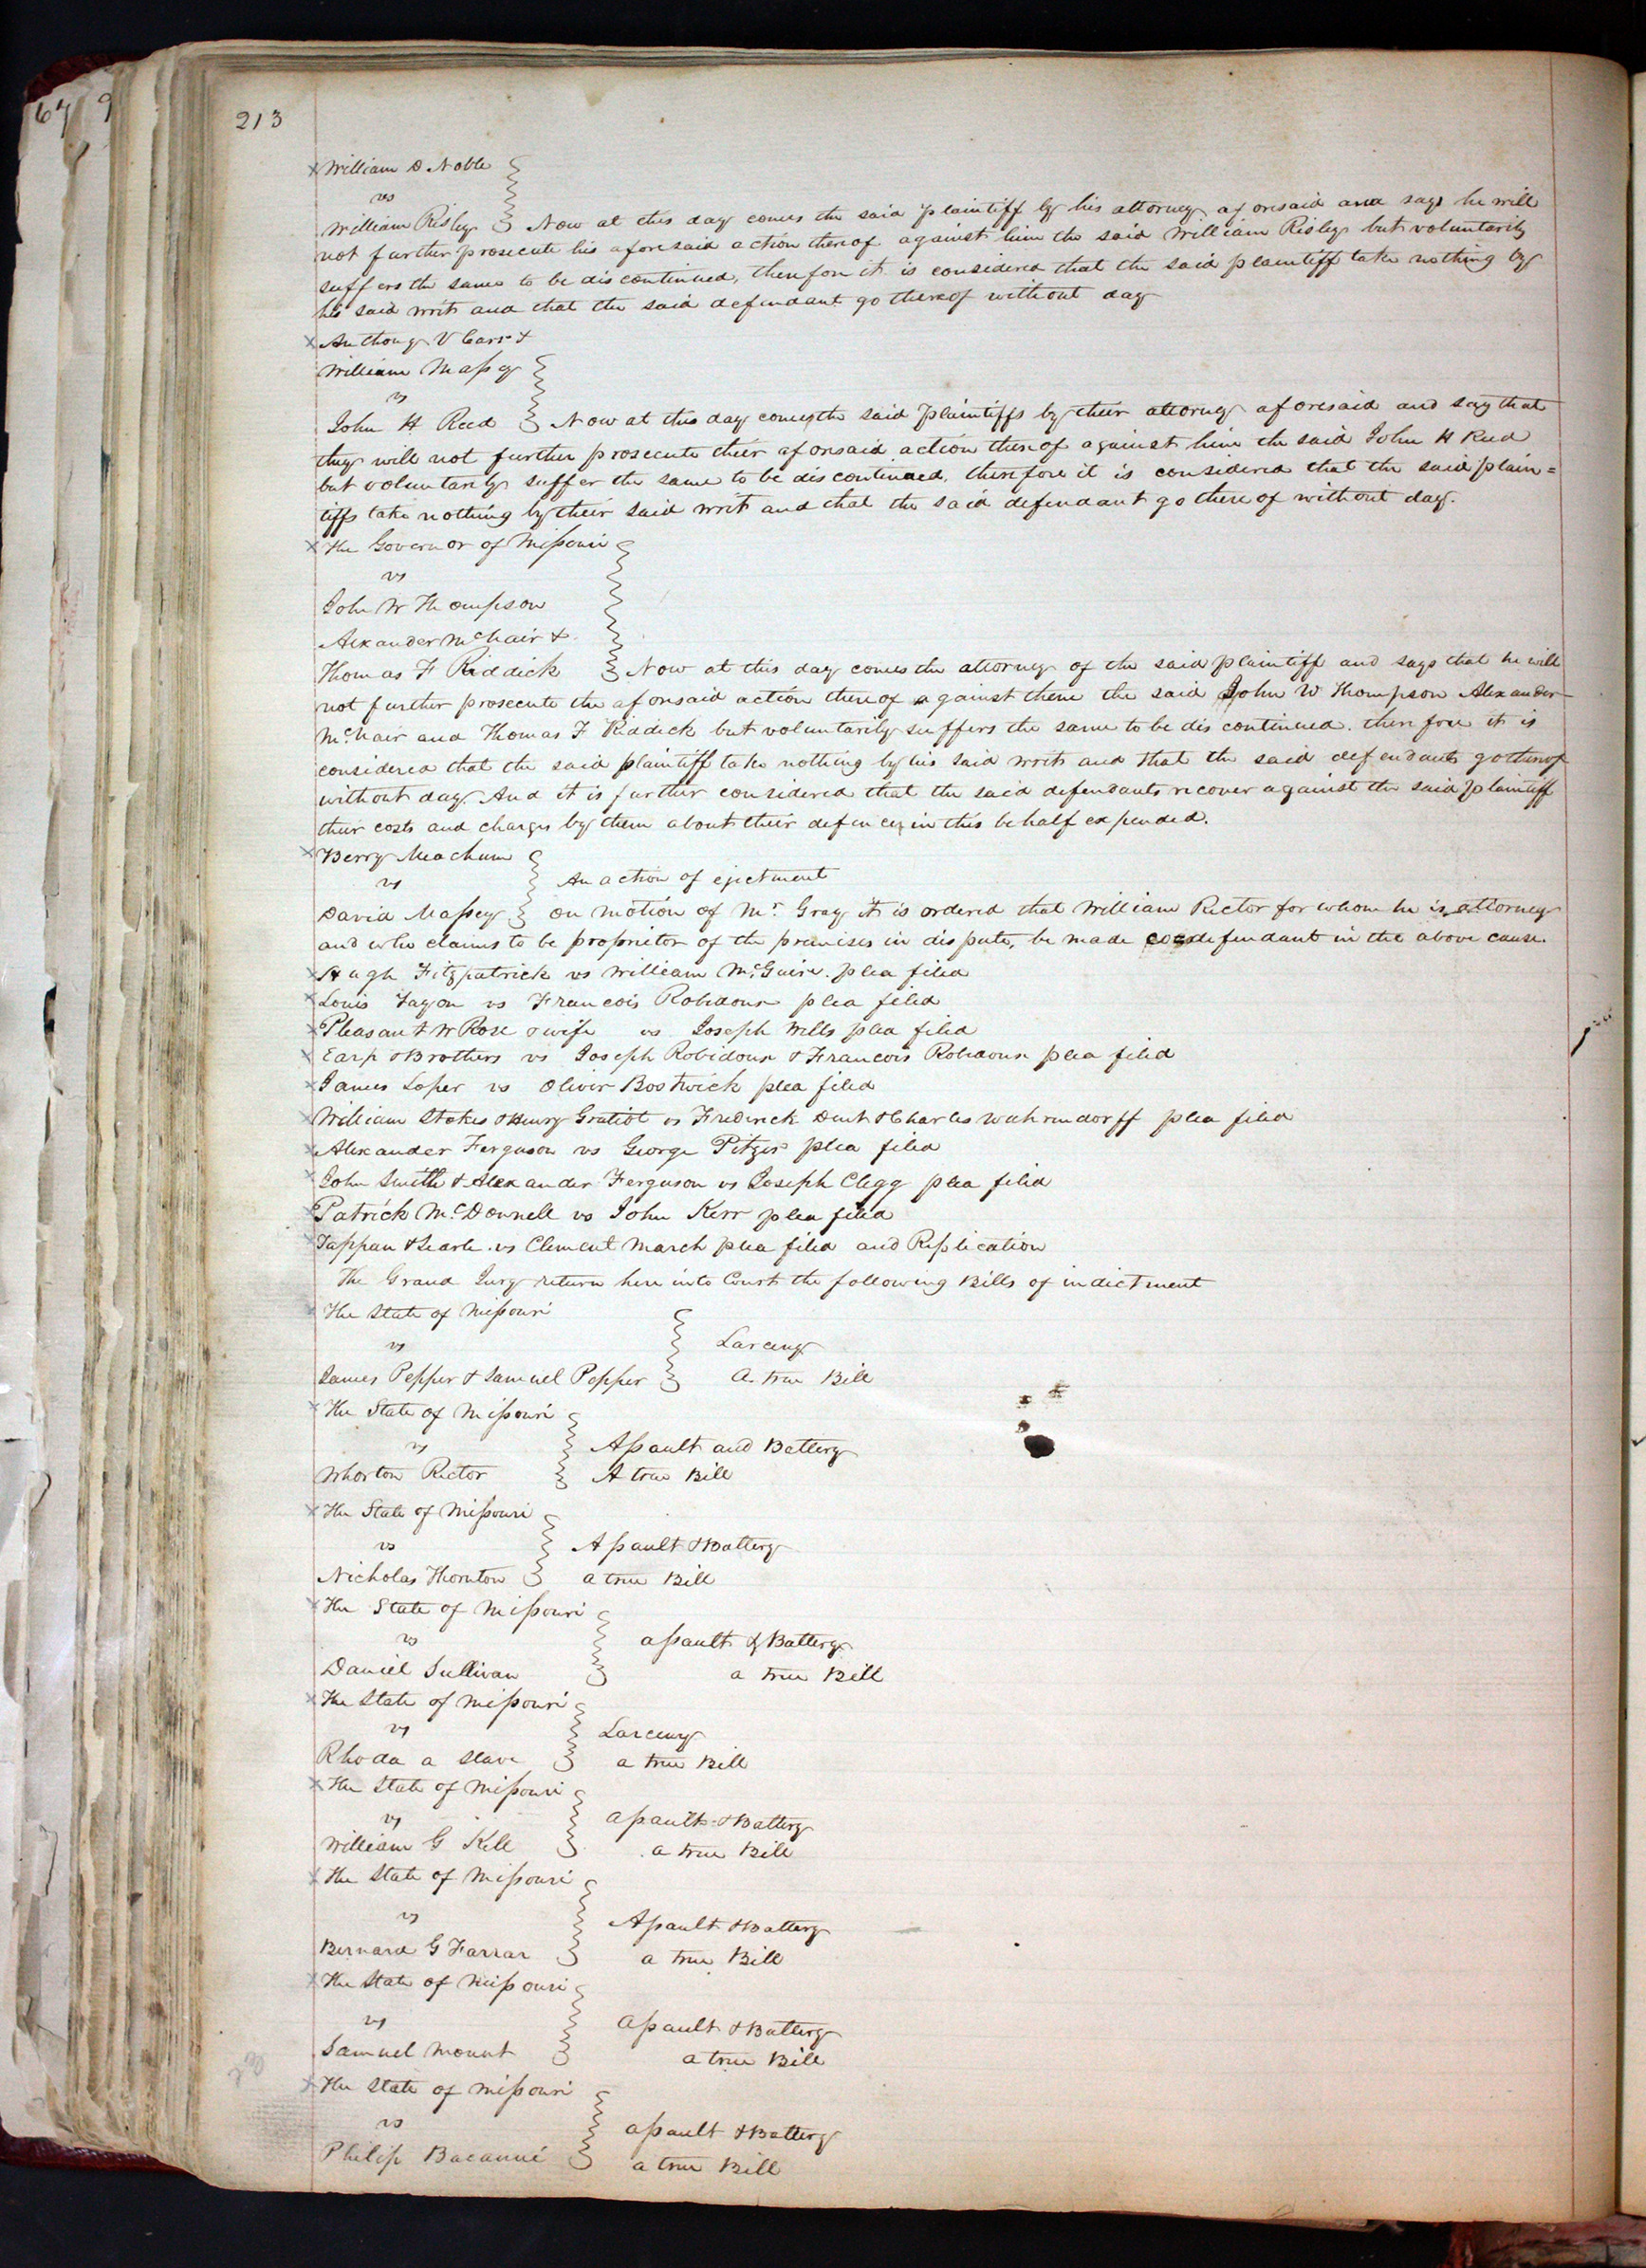 67 9
213
William D Noble
vs
William Risley Now at this day comes the said plaintiff by his attorney aforesaid and says he will
not further prosecute his aforesaid action thereof against him the said William Risley but voluntarily
suffers the same to be discontinued, therefore it is considered that the said plaintiff take nothing by
his said writ and that the said defendant go thereof without day
Anthony V Carr &
William Massey
vs
John H Reed Now at this day comes the said Plaintiffs by their attorney aforesaid and say that
they will not further prosecute their aforesaid action thereof against him the said John H Reed
but voluntarily suffer the same to be discontinued, therefore it is considered that the said plain=
tiffs take nothing by their said writ and that the said defendant go thereof without day.
The Governor of Missouri
vs
John W Thompson
Alexander McNair &
Thomas F Riddick Now at this day comes the attorney of the said plaintiff and says that he will
not further prosecute the aforesaid action thereof against them the said John W Thompson Alexander
McNair and Thomas F Riddick but voluntarily suffers the same to be discontinued. therefore it is
considered that the said plaintiff take nothing by his said writ and that the said defendants go thereof
without day. And it is further considered that the said defendants recover against the said plaintiff
their costs and charges by them about their defence in this behalf expended.
Berry Meachum
vs An action of ejectment
David Massey On motion of Mr Gray it is ordered that William Rector for whom he is attorney
and who claims to be proprietor of the premises in dispute, be made codefendant in the above cause.
Hugh Fitzpatrick vs William McGuire. plea filed
Louis Fayon vs Francois Robidoux plea filed
Pleasant W Rose & wife vs Joseph Wells plea filed
Earp & Brothers vs Joseph Robidoux & Francois Robidoux plea filed
James Loper vs Oliver Bostwick plea filed
William Stokes & Henry Gratiot vs Frederick Dent & Charles Wahrendorff plea filed
Alexander Ferguson vs George Pitzer plea filed
John Smith & Alexander Ferguson vs Joseph Clegg plea filed
Patrick McDonnell vs John Kerr plea filed
Tappan & Searle vs Clement March plea filed and Replication
The Grand Jury return here into Court the following Bills of indictment
The State of Missouri
vs Larceny
James Pepper & Samuel Pepper A true Bill
The State of Missouri
vs Assault and Battery
Whorton Rector A true Bill
The State of Missouri
vs Assault & Battery
Nicholas Thornton a true Bill
The State of Missouri
vs assault & Battery
Daniel Sullivan a true Bill
The State of Missouri
vs Larceny
Rhoda a slave a true Bill
The State of Missouri
vs assault & Battery
William G Kell a true Bill
The State of Missouri
vs Assault & Battery
Bernard G Farrar a true Bill
The State of Missouri
vs assault & Battery
Samuel Mount a true Bill
The State of Missouri
vs assault & Battery
Philip Bacanné a true Bill